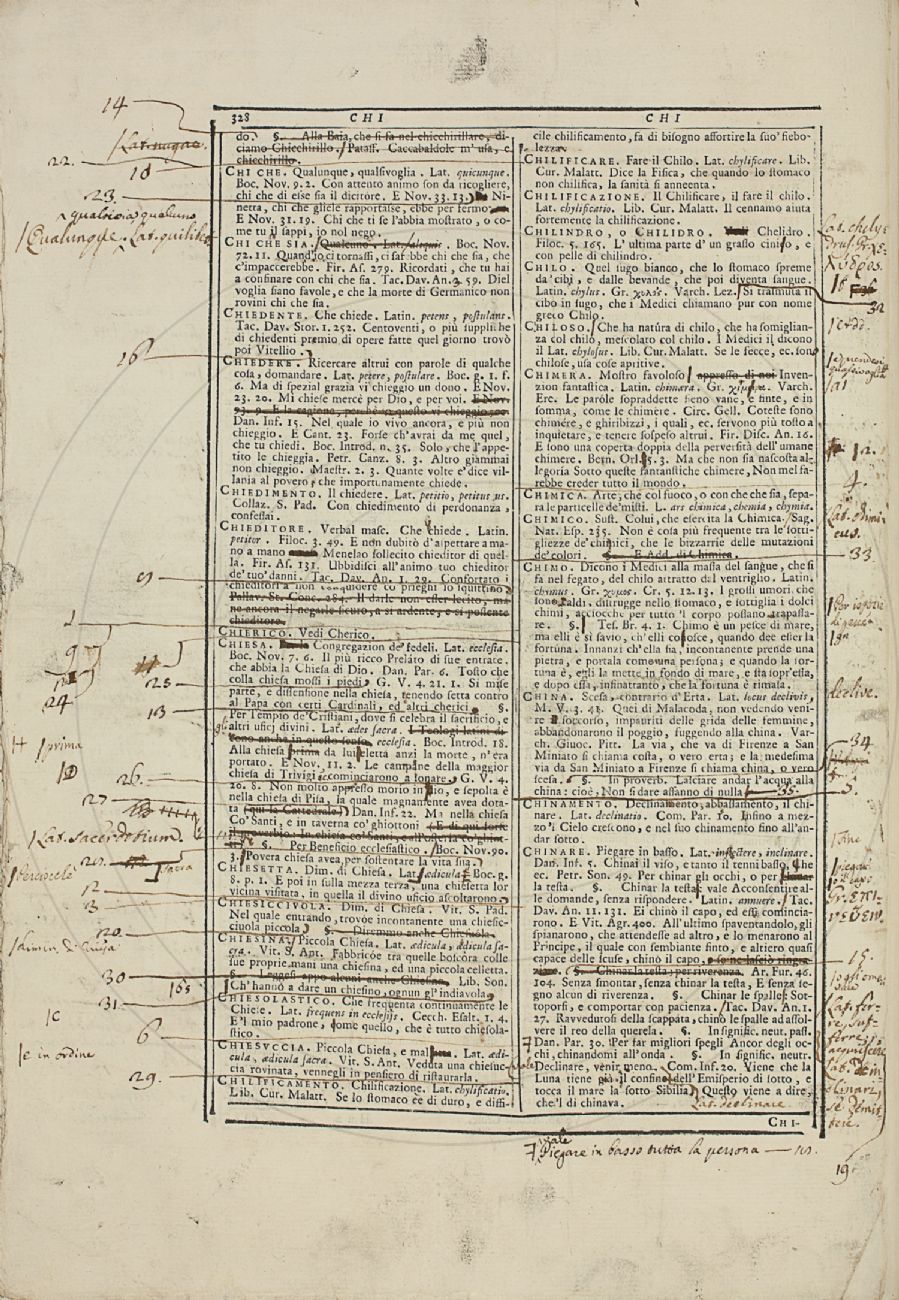 328 CHI CHI
do. §. Alla Baja, che si fa nel chicchirillare, di-
ciamo Chicchirillo. Pataff. Caccabaldole m' usa, e
chicchirillo.
CHI CHE. Qualunque, qualsivoglia. Lat. quicunque.
Boc. Nov. 9. 2. Con attento animo son da ricogliere,
chi che di esse sia il dicitore. E Nov. 33. 13. Ni-
netta, chi che gliele rapportasse, ebbe per fermo.
E Nov. 31. 19. Chi che ti se l'abbia mostrato, o co-
me tu il sappi, io nol nego.
CHI CHE SIA. Qualcuno. Lat. aliquis. Boc. Nov.
72. 11. Quand'io ci tornassi, ci sarebbe chi che sia, che
c'impaccerebbe. Fir. As. 279. Ricordati, che tu hai
a confinare con chi che sia. Tac. Dav. An. 2. 59. Diel
voglia fiano favole, e che la morte di Germanico non
rovini chi che sia.
CHIEDENTE. Che chiede. Latin. petens, postulans.
Tac. Dav. Stor. 1. 252. Centoventi, o più suppliche
di chiedenti premio di opere fatte quel giorno trovò
poi Vitellio.
CHIEDERE. Ricercare altrui con parole di qualche
cosa, domandare. Lat. petere, postulare. Boc. g. 1. f.
6. Ma di spezial grazia vi chieggio un dono. E Nov.
23. 20. Mi chiese mercè per Dio, e per voi. E Nov.
93. 9. E la cagione, perchè a questo vi chieggio, ec.
Dan. Inf. 15. Nel quale io vivo ancora, e più non
chieggio. E Cant. 23. Forse ch'avrai da me quel,
che tu chiedi. Boc. Introd. n. 35. Solo, che l'appe-
tito le chieggia. Petr. Canz. 8. 3. Altro giammai
non chieggio. Maestr. 2. 3. Quante volte e' dice vil-
lania al povero, che importunamente chiede.
CHIEDIMENTO. Il chiedere. Lat. petitio, petitus us.
Collaz. S. Pad. Con chiedimento di perdonanza,
confessai.
CHIEDITORE. Verbal masc. Che chiede. Latin.
petitor. Filoc. 3. 49. E non dubitò d'aspettare a ma-
no a mano Menelao sollecito chieditor di quel-
la. Fir. As. 131. Ubbidisci all'animo tuo chieditore
de' tuo' danni. Tac. Dav. An. 1. 29. Confortato i
chieditori a non conquidere co' prieghi lo squittino
Pallav. St. Conc. 284. Il darle non esser lecito, ma
no ancora il negarle sicuro, a sì ardente, e sì possente
chieditore.
CHIERICO. Vedi Cherico.
CHIESA. Congregazion de' fedeli. Lat. ecclesia.
Boc. Nov. 7. 6. Il più ricco Prelato di sue entrate,
che abbia la Chiesa di Dio. Dan. Par. 6. Tosto che
colla chiesa mossi i piedi. G. V. 4. 21. 1. Si mise
parte, e dissensione nella chiesa, tenendo setta contro
al Papa con certi Cardinali, ed altri cherici. §.
Per Tempio de' Cristiani, dove si celebra il sacrificio, e
altri ufici divini. Lat. ædes sacra. I Teologi latini di-
cono anche in questo senso ecclesia. Boc. Introd. 18.
Alla chiesa prima da lui eletta anzi la morte, n'era
portato. E Nov. 11. 2. Le campane della maggior
chiesa di Trivigi cominciarono a sonare. G. V. 4.
20. 8. Non molto appresso morìo in Pio, e sepolta è
nella chiesa di Pisa, la quale magnamente avea dota-
ta (qui la Cattedrale) Dan. Inf. 22. Ma nella chiesa
Co' Santi, e in taverna co' ghiottoni (E di qui forse
il proverbio: In chiesa co' Santi, e all'osteria co' ghiot-
toni) §. Per Beneficio ecclesiastico. Boc. Nov. 90.
3. Povera chiesa avea, per sostentare la vita sua.
CHIESETTA. Dim. di Chiesa. Lat. ædicula. Boc. g.
8. p. 1. E poi in sulla mezza terza, una chiesetta lor
vicina visitata, in quella il divino uficio ascoltarono.
CHIESICCIVOLA. Dim. di Chiesa. Vit. S. Pad.
Nel quale entrando, trovoe incontanente una chiesic-
ciuola piccola. §. Diremmo anche Chiesuola.
CHIESINA. Piccola Chiesa. Lat. ædicula, ædicula sa-
cra. Vit. S. Ant. Fabbricoe tra quelle boscora colle
sue proprie mani una chiesina, ed una piccola celletta.
§. Leggesi appo alcuni anche Chiesino. Lib. Son.
Ch' hanno a dare un chiesino, ognun gl' indiavola.
CHIESOLASTICO. Che frequenta continuamente le
Chiese. Lat. frequens in ecclesijs. Cecch. Esalt. 1. 4.
E 'l mio padrone, come quello, che è tutto chiesola-
stico.
CHIESUCCIA. Piccola Chiesa, e mal Lat. ædi-
cula, ædicula sacra. Vit. S. Ant. Veduta una chiesuc-
cia rovinata, vennegli in pensiero di ristaurarla.
CHILIFICAMENTO. Chilificazione. Lat. chylificatio.
Lib. Cur. Malatt. Se lo stomaco è di duro, e diffi-
cile chilificamento, fa di bisogno assortire la suo' fiebo-
lezza.
CHILIFICARE. Fare il Chilo. Lat. chylificare. Lib.
Cur. Malatt. Dice la Fisica, che quando lo stomaco
non chilifica, la sanità si anneenta.
CHILIFICAZIONE. Il Chilificare, il fare il chilo.
Lat. chylificatio. Lib. Cur. Malatt. Il cennamo aiuta
fortemente la chilificazione.
CHILINDRO, o CHILIDRO. Chelidro.
Filoc. 5. 165. L' ultima parte d' un grasso ciniso, e
con pelle di chilindro.
CHILO. Quel sugo bianco, che lo stomaco spreme
da' cibi, e dalle bevande, che poi diventa sangue.
Latin. chylus. Gr. χυλός. Varch. Lez. Si trasmuta il
cibo in sugo, che i Medici chiamano pur con nome
greco Chilo.
CHILOSO. Che ha natura di chilo, che ha somiglian-
za col chilo, mescolato col chilo. I Medici il dicono
il Lat. chylosus. Lib. Cur. Malatt. Se le fecce, ec. sono
chilose, usa cose aprìtive.
CHIMERA. Mostro favoloso appresso di noi Inven-
zion fantastica. Latin. chimæra. Gr. χίμαιρα. Varch.
Erc. Le parole sopraddette sieno vane, e finte, e in
somma, come le chimere. Circ. Gell. Coteste sono
chimere, e ghiribizzi, i quali, ec. servono più tosto a
inquietare, e tenere sospeso altrui. Fir. Disc. An. 16.
E sono una coperta doppia della perversità dell' umane
chimere. Bern. Orl. 5. 3. Ma che non sia nascosta al-
legoria Sotto queste fantastiche chimere, Non mel fa-
rebbe creder tutto il mondo.
CHIMICA. Arte, che col fuoco, o con che che sia, sepa-
ra le particelle de' misti. L. ars chimica, chemia, chymia.
CHIMICO. Sust. Colui, che esercita la Chimica. Sag.
Nat. Esp. 235. Non è cosa più frequente tra le sotti-
gliezze de' chimici, che le bizzarrie delle mutazioni
de' colori. §. E Add. di Chimica.
CHIMO. Dicono i Medici alla massa del sangue, che si
fa nel fegato, del chilo attratto dal ventriglio. Latin.
chimus. Gr. χυμός. Cr. 5. 12. 13. I grossi umori che
sono caldi, distrugge nello stomaco, e sottiglia i dolci
chimi, acciocchè per tutto 'l corpo possano trapassa-
re. §. Tes. Br. 4. 1. Chimo è un pesce di mare,
ma elli è sì savio, ch'elli conosce, quando dee esser la
fortuna. Innanzi ch'ella sia, incontanente prende una
pietra, e portala come una persona; e quando la for-
tuna è, egli la mette in fondo di mare, e sta sopr'essa,
e dopo essa, infinattanto, che la fortuna è rimasa.
CHINA. Scesa, contrario d'Erta. Lat. locus declivis.
M. V. 3. 43. Quei di Malacoda, non vedendo veni-
re 'l soccorso, impauriti delle grida delle femmine,
abbandonarono il poggio, fuggendo alla china. Var-
ch. Giuoc. Pitt. La via, che va di Firenze a San
Miniato si chiama costa, o vero erta; e la medesima
via da San Miniato a Firenze si chiama china, o vero
scesa. §. In proverb. Lasciare andar l'acqua alla
china: cioè, Non si dare affanno di nulla
CHINAMENTO. Declinamento, abbassamento, il chi-
nare. Lat. declinatio. Com. Par. 10. Insino a mez-
zo 'l Cielo crescono, e nel suo chinamento fino all'an-
dar sotto.
CHINARE. Piegare in basso. Lat. inflectere, inclinare.
Dan. Inf. 5. Chinai il viso, e tanto il tenni basso, Che
ec. Petr. Son. 49. Per chinar gli occhi, o per
la testa. §. Chinar la testa, vale Acconsentire al-
le domande, senza rispondere. Latin. annuere. Tac.
Dav. An. 11. 131. Ei chinò il capo, ed essi comincia-
rono. E Vit. Agr. 400. All'ultimo spaventandolo, gli
spianarono, che attendesse ad altro, e lo menarono al
Principe, il quale con sembiante finto, e altiero quasi
capace delle scuse, chinò il capo, e se ne lasciò ringra-
ziare. §. Chinar la testa, per riverenza. Ar. Fur. 46.
104. Senza smontar, senza chinar la testa, E senza se-
gno alcun di riverenza. §. Chinar le spalle, Sot-
toporsi, e comportar con pacienza. Tac. Dav. An. 1.
27. Ravvedutosi della scappata, chinò le spalle ad assol-
vere il reo della querela. §. In signific. neut. pass.
Dan. Par. 30. Per far migliori spegli Ancor degli oc-
chi, chinandomi all'onda. §. In signific. neutr.
Declinare, venir meno. Com. Inf. 20. Viene che la
Luna tiene già il confine dell' Emisperio di sotto, e
tocca il mare là sotto Sibilia, Questo viene a dire,
che 'l dì chinava. Lat. declinare.
CHI-
14
Lat. nugae.
22.
18
23.
qualsisia, qualcuno
Qualunque. Lat. quilibet
16
9
28
24
13
prima
10
26.
27
Lat. Sacerdotium
sacra
12
3
20.
30
31
6
e in ordine
29.
Lat.
33
declive.
34
15.
19
Piegare in basso tutta la persona